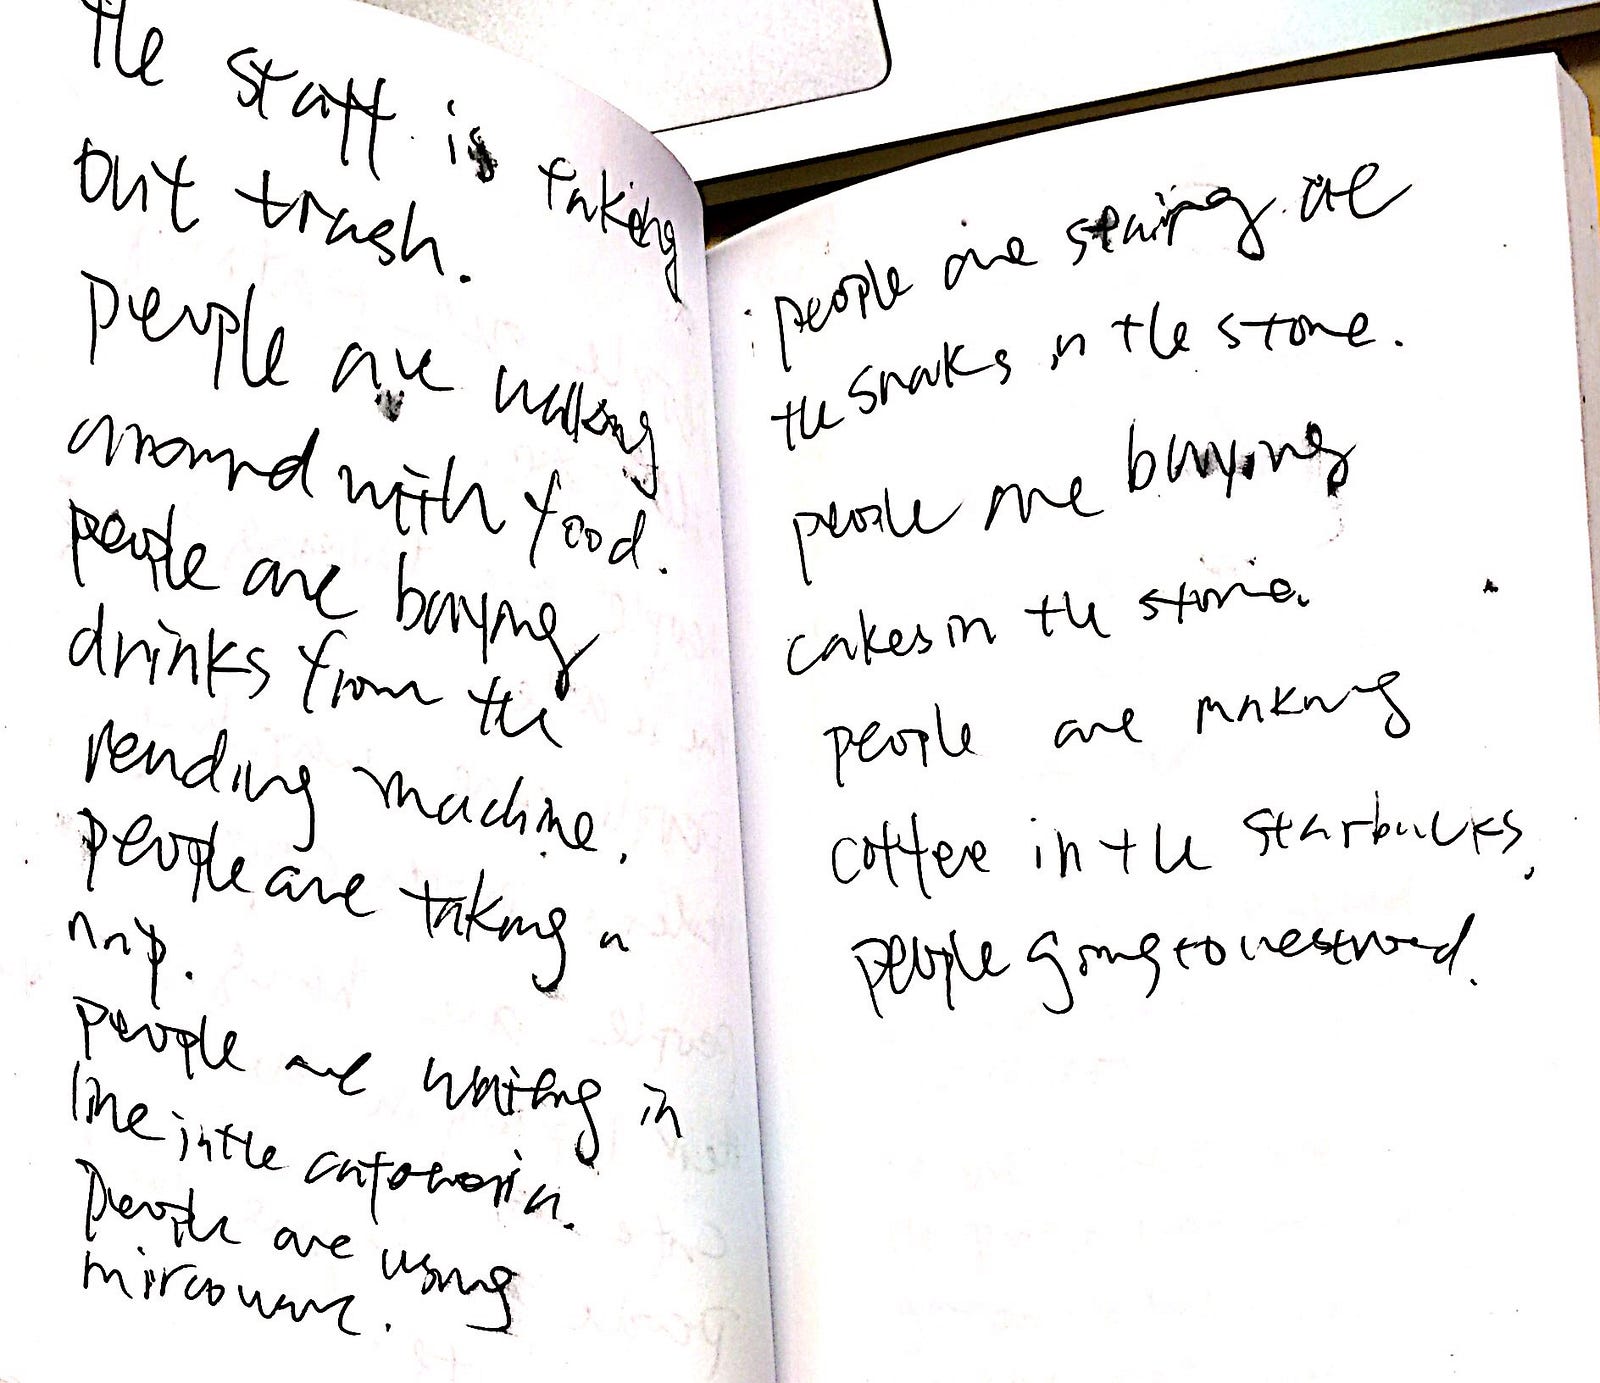 the staff is taking
out trash.
people are walking
around with food.
people are buying
drinks from the
vending machine.
people are taking a
nap.
people are waiting in
line in the
people are using
people are staring at
the snaks in the store.
people are buying
cakes in the store.
people are making
coffee in the starbucks.
people going to